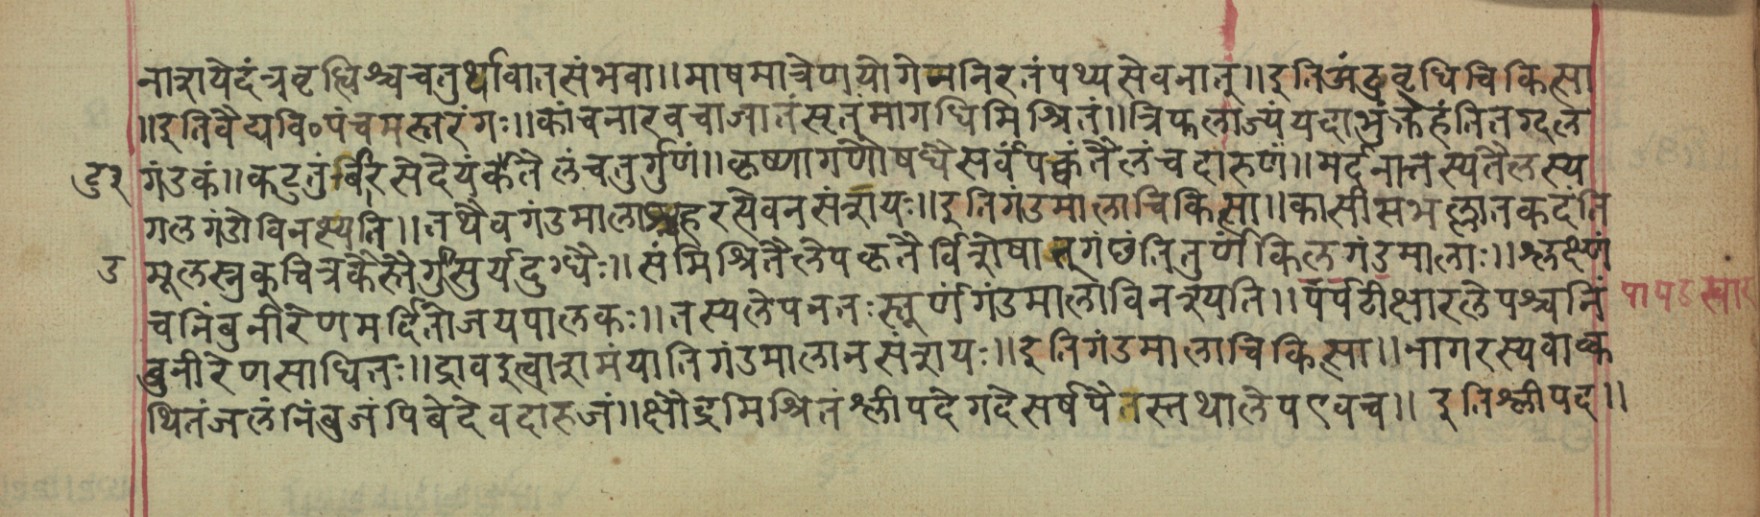 नाशयेदंत्रवृद्धिश्चचतुर्थावातसंभवा॥माषमात्रेणयोगेननिरतंपथ्यसेवनात्॥इतिअंडवृधिचिकित्सा
॥इतिवैद्यवि॰पंचमस्तरंगः॥कांचनारवचाजातंसृत्तंमागधिमिश्रितं॥त्रिफलाज्यंयदाभुंक्तेहंतितग्दल
गंडकं॥कटुतुंबिरसेदेयंकंतैलंचतुर्गुणं॥कृष्णागणौषधैसर्वंपक्वंतैलंचदारुणं॥मर्दनात्तस्यतैलस्य
गलगंडोविनश्यति॥तथैवगंडमालाहरत्येवनसंशयः॥इतिगंडमालाचिकित्सा॥कासीसभल्लातकदंति
मूलस्नुकूचित्रकैस्तैर्गुसुर्यदुग्धैः॥संमिश्रितैलेपकृतैर्विशेषात्गंछंतितुर्णंकिलगंडमालाः॥श्लक्ष्णं
चनिंबुनीरेणमर्दितोजयपालकः॥तस्यलेपनतःस्तूर्णंगंडमालाविनश्यति॥पर्पटीक्षारलेपश्चनिं
बुनीरेणसाधितः॥द्रावइत्वाशमंयातिगंडमालानसंशयः॥इतिगंडमालाचिकित्सा॥नागरस्यवाक्व
थितंजलंनिंबुजंपिबेदेवदारुजं॥क्षौद्रमिश्रितंश्लीपदेगदेसर्षपैतस्तथालेपएवच॥इतिश्लीपद॥